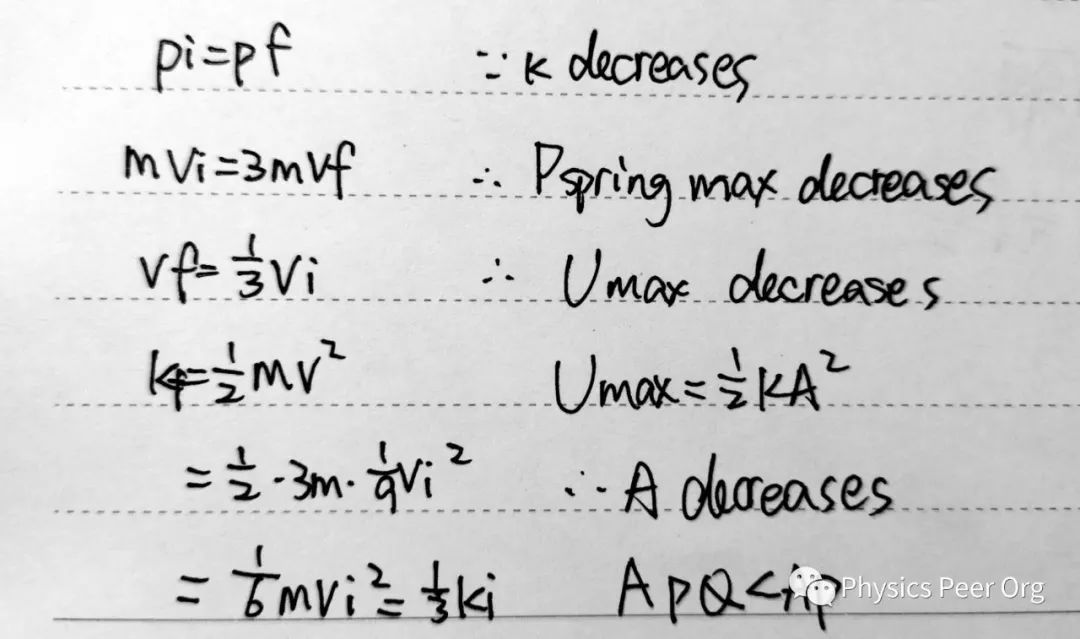 pi=pf
mvi=3mvf
vf=1/3vi
Kf=1/2mv²
=1/2·3m·1/9vi²
=1/6mvi²=1/3Ki
∵ K decreases
∴ Pspring max decreases
∴ Umax decreases
Umax=1/2KA²
∴ A decreases
APQ<Ap
Physics Peer Org